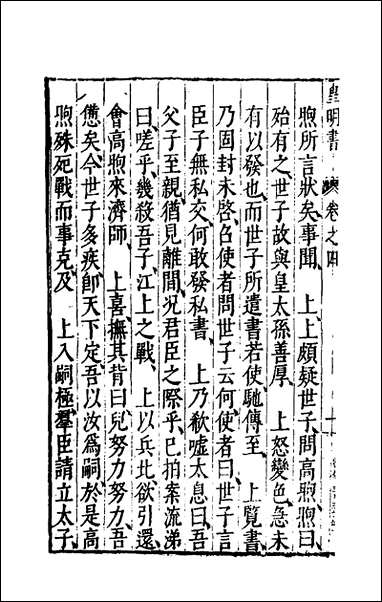 皇明書 卷之四
煦所言狀矣事聞 上上頗疑世子問高煦煦曰
殆有之世子故與皇太孫善厚 上怒變色急未
有以發也而世子所遺書若使馳傳至 上覽書
乃固封未啓召使者問世子云何使者曰世子言
臣子無私交何敢發私書 上乃歎噓太息曰吾
父子至親猶見離間况君臣之際乎已拍案流涕
曰嗟乎幾殺吾子江上之戰 上以兵北欲引還
會高煦來濟師 上喜撫其背曰兒努力努力吾
憊矣今世子多疾卽天下定吾以汝爲嗣於是高
煦殊死戰而事克及 上入嗣極羣臣請立太子